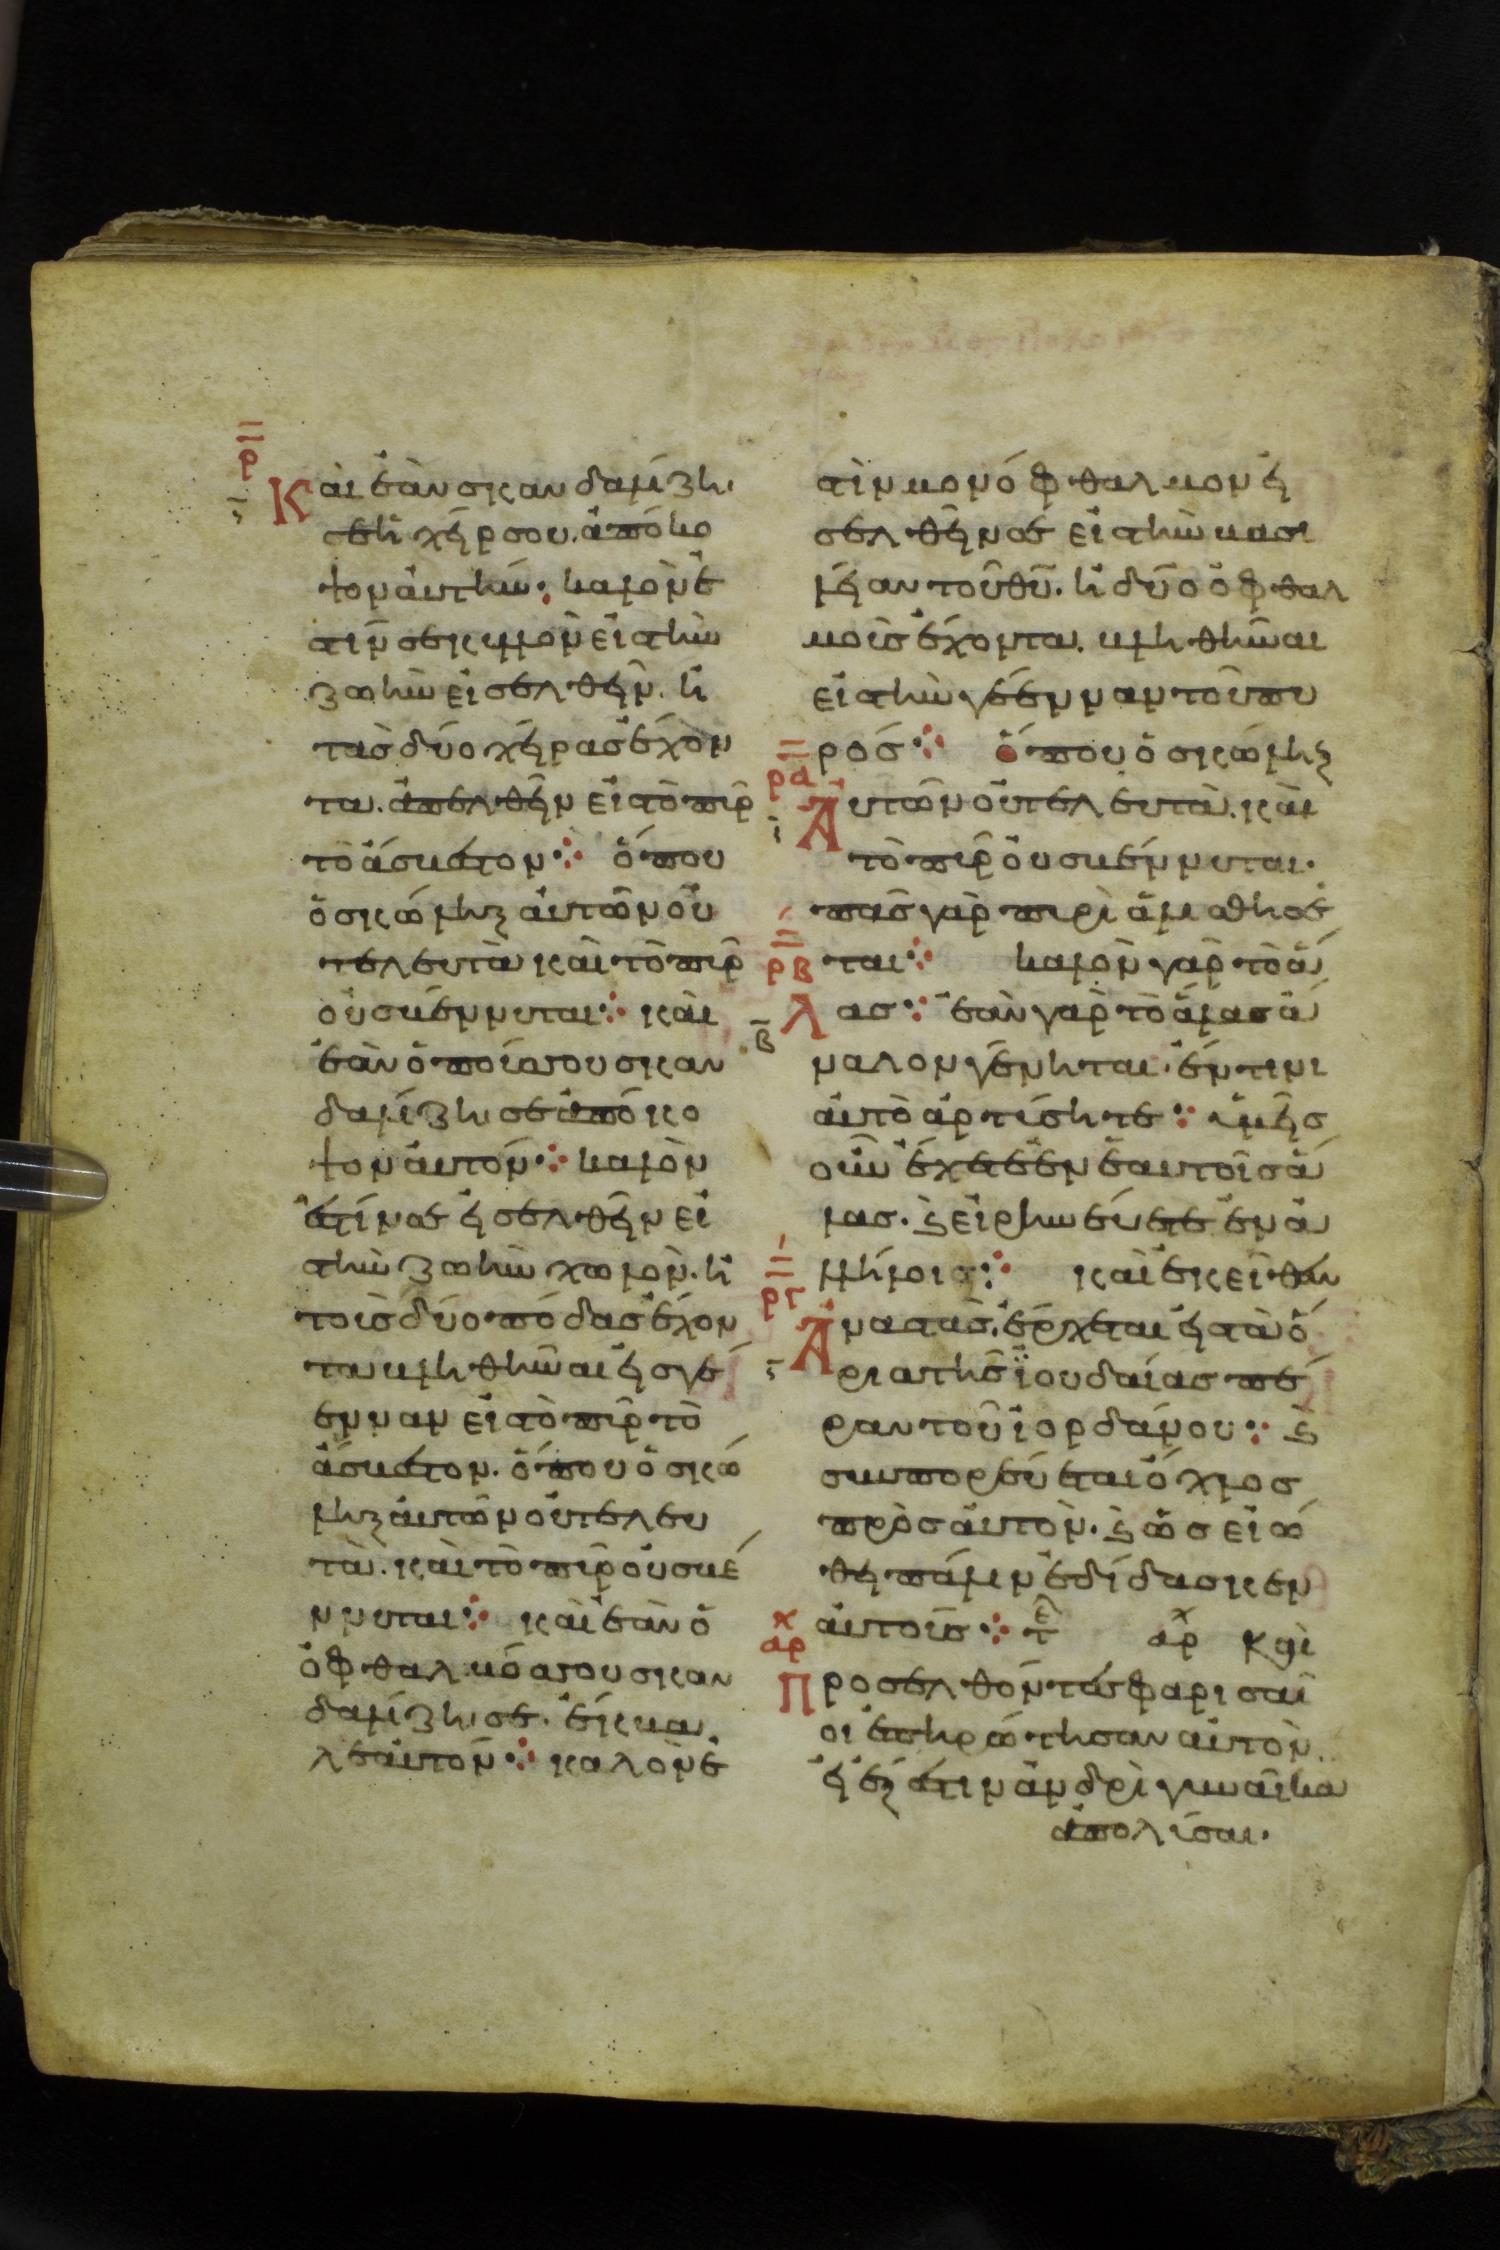 ρ
Και εὰν σκανδαλίζη
ς
σε ἡ χείρ σου. ἀπόκο
ψον αὐτήν· καλὸν ἐ
στιν σε κυλλὸν εἰς τὴν
ζωὴν εἰσελθεῖν. ἢ
τὰς δύο χεῖρας ἔχον
τα. ἀπελθεῖν εἰς τὸ πῦρ
τὸ ἄσβεστον ⁘ ὅπου
ὁ σκώληξ αὐτῶν οὐ
τελευτὰ καὶ τὸ πῦρ
οὐ σβέννυται ⁘ καὶ
ἐὰν ὁ ποῦς σου σκαν
δαλίζη σε ἀπόκο
ψον αὐτόν ⁘ καλὸν
ἐστίν σε εἰσελθεῖν εἰ
ς τὴν ζωὴν χωλὸν. ἢ
τοὺς δύο πόδας ἔχον
τα βληθῆναι εἰς γέ
ενναν εἰς τὸ πῦρ τὸ
ἄσβεστον. ὅπου ὁ σκώ
ληξ αὐτῶν οὐ τελευ
τὰ. καὶ τὸ πῦρ οὐ σβέ
ννυται ⁘ καὶ ἐὰν ὁ
ὀφθαλμός σου σκαν
δαλίζη σε. ἔκβα
λε αὐτόν ⁘ καλὸν ἐ
στὶν μονόφθαλμον εἰ
σελθεῖν σε εἰς τὴν βασι
λείαν τοῦ θῦ. ἢ δύο ὀφθαλ
μοὺς ἔχοντα. βληθῆναι
εἰς τὴν γέενναν τοῦ πυ
ρός ⁘ ὅπου ὁ σκώληξ
ρα
Αυτῶν οὐ τελευτὰ. καὶ
ι
τὸ πῦρ οὐ σβέννυται.
πᾶς γὰρ πυρὶ ἁλισθήσε
ται ⁘ καλὸν γὰρ τὸ ἅ
ρβ
Λας ⁘ ἐὰν γὰρ τὸ ἅλας ἄ
β
ναλον γένηται. ἐν τίνι
αὐτὸ ἀρτύσητε ⁘ ὑμεῖς
οὖν ἔχετε ἐν ἑαυτοῖς ἅ
λας. καὶ εἰρηνεύετε ἐν ἀ
λλήλοις ⁘ καὶ ἐκεῖθεν
ργ
Αναστὰς. ἔρχεται εἰς τὰ ὅ
ς
ρια τῆς ϊουδαίας πέ
ραν τοῦ ἰορδάνου ⁘ καὶ
συνπορεύεται ὄχλος
πρὸς αὐτὸν. καὶ ὡς εἰώ
θει πάλιν ἐδίδασκεν
αὐτούς ⁘ τε αρχ κ αι
αρχ
Προσελθόντες φαρισαῖ
οι ἐπηρώτησαν αὐτὸν.
εἰ ἔξεστιν ἀνδρὶ γυναῖκα
ἀπολύσαι.